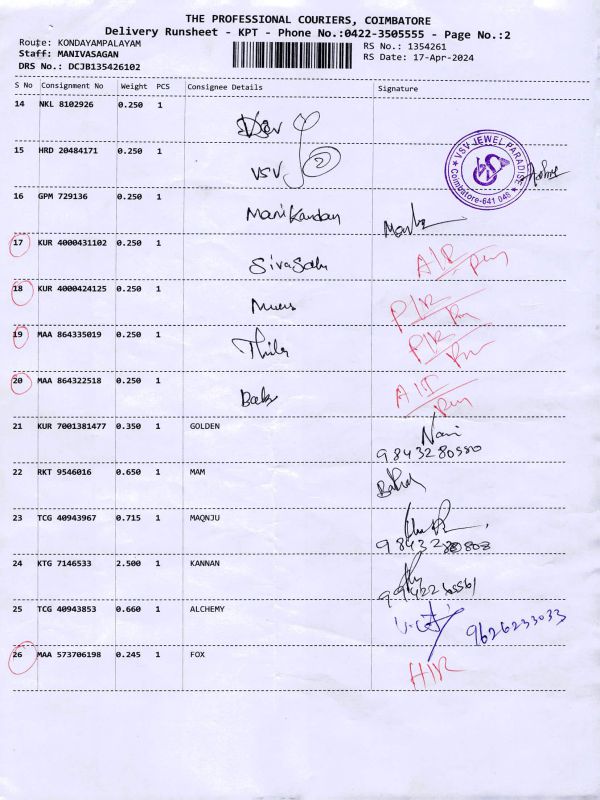 THE PROFESSIONAL COURIERS, COIMBATORE
Delivery Runsheet - KPT - Phone No.:0422-3505555 - Page No.:2
Route: KONDAYAMPALAYAM
RS No.: 1354261
Staff: MANIVASAGAN
RS Date: 17-Apr-2024
DRS No.: DCJB135426102
S No Consignment No Weight PCS Consignee Details Signature
14 NKL 8102926 0.250 1
Dev
15 HRD 20484171 0.250 1
VSV 2
VSV JEWEL PARADISE
Coimbatore-641 048
16 GPM 729136 0.250 1
Manikandan
17 KUR 4000431102 0.250 1
A/P
18 KUR 4000424125 0.250 1
P/R
19 MAA 864335019 0.250 1
P/R
20 MAA 864322518 0.250 1
21 KUR 7001381477 0.350 1 GOLDEN
Nani
9843280580
22 RKT 9546016 0.650 1 MAM
23 TCG 40943967 0.715 1 MAQNJU
24 KTG 7146533 2.500 1 KANNAN
25 TCG 40943853 0.660 1 ALCHEMY
9626233033
26 MAA 573706198 0.245 1 FOX
H/R